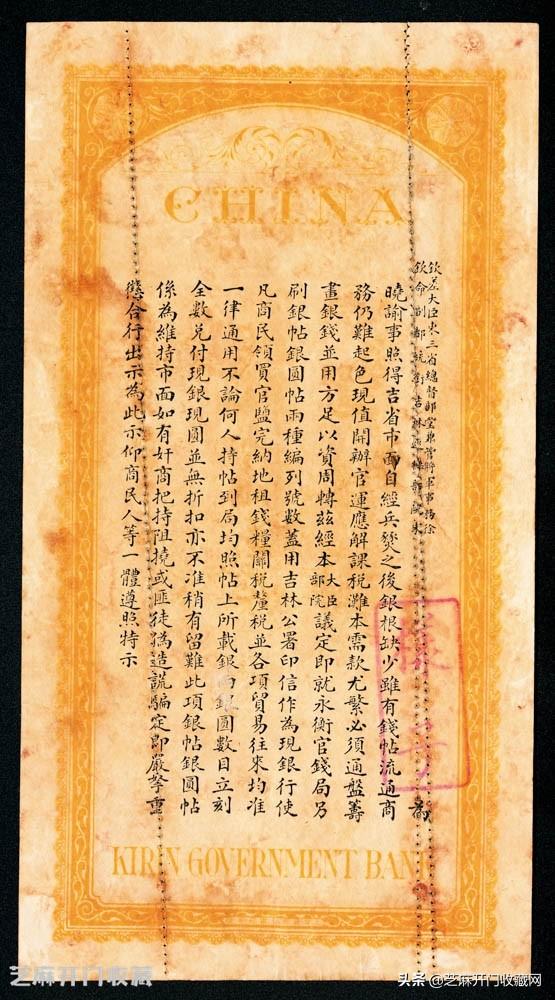 CHINA
欽差大臣東三省總督部堂兼管將軍事務徐
欽命副都統銜吉林巡撫部院朱
為
曉諭事照得吉省市面自經兵燹之後銀根缺少雖有錢帖流通商
務仍難起色現值開辦官運應解課稅灘本需款尤繁必須通盤籌
畫銀錢並用方足以資周轉茲經本大臣部院議定即就永衡官錢局乃
刷銀帖銀圓帖兩種編列號數蓋用吉林公署印信作為現銀行使
凡商民領買官鹽完納地租錢糧關稅釐稅並各項貿易往來均准
一律通用不論何人持帖到局均照帖上所載銀兩銀圓數目立刻
全數兌付現銀現圓並無折扣亦不准稍有留難此項銀帖銀圓帖
係為維持市面如有奸商把持阻撓或匪徒偽造謊騙定即嚴拏重
懲合行出示為此示仰商民人等一體遵照特示
KIRIN GOVERNMENT BANK
芝麻开门收藏
头条 @芝麻开门收藏网